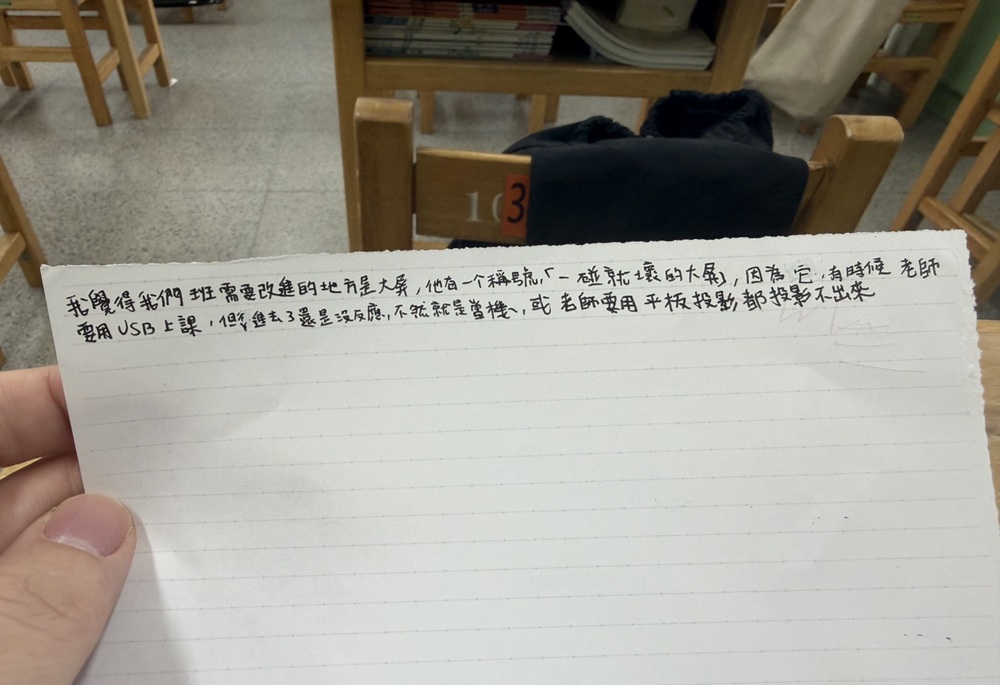 10
3
我覺得我們班需要改進的地方是大屏，他有一个稱號，「一碰就壞的大屏」，因為它，有時候 老師
要用USB上課，但進去了還是沒反應，不然就是當機、，或 老師要用平板投影都投影不出來